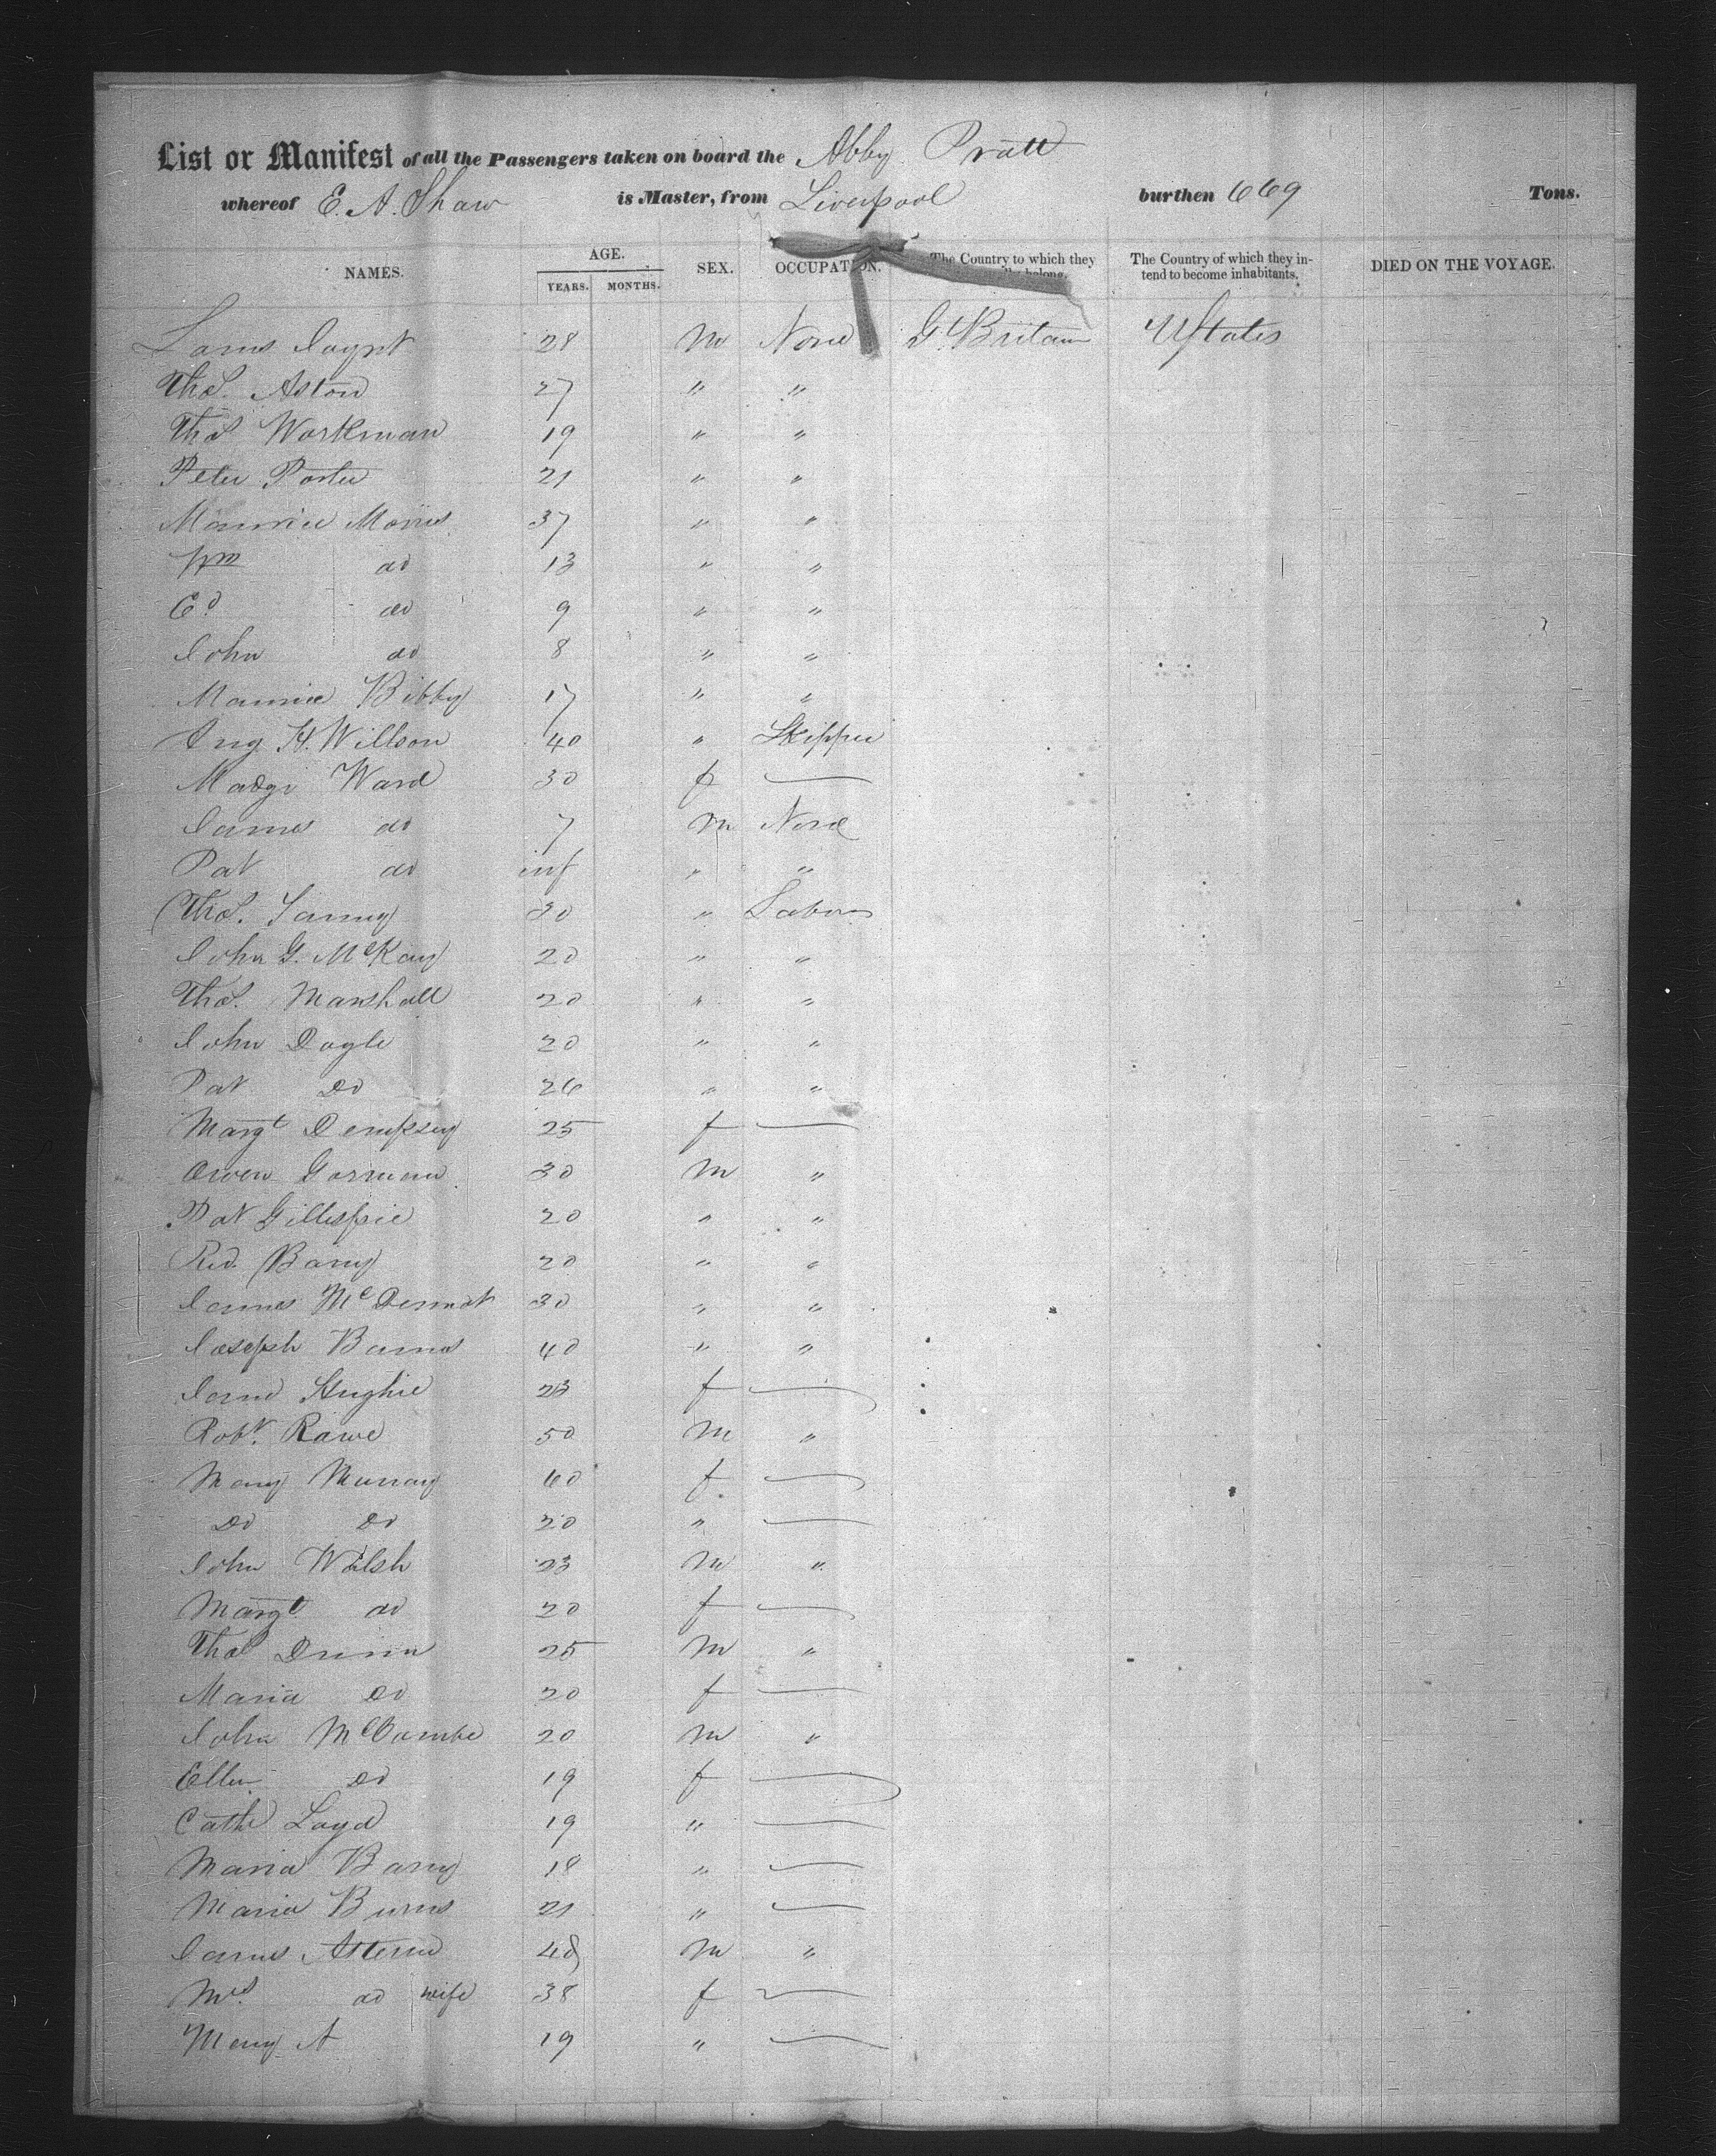 List or Manifest of all the Passengers taken on board the Abby Pratt
whereof E. A. Shaw is Master, from Liverpool burthen 669 Tons.
NAMES. AGE. YEARS. MONTHS. SEX. OCCUPATION. The Country to which they belong. The Country of which they intend to become inhabitants. DIED ON THE VOYAGE.
28 m None Gt Britain UStates
Thos. Aston 27 " "
Thos Workman 19 " "
Peter Porter 21 " "
Maurice Morris 37 " "
Wm do 13 " "
Ed do 9 " "
John do 8 " "
Maurice Bibby 17 " "
H. Willson 40 " Skipper
Madge Ward 30 f —
James do 7 m None
Pat do inf " "
Thos. 30 " Labor
John G. McKay 20 " "
Thos. Marshall 20 " "
John Doyle 20 " "
Pat Do 26 " "
Margt Dempsey 25 f —
Owen Gorman 30 m "
Pat Gillespie 20 " "
Rd. Barry 20 " "
James McDermot 30 " "
Joseph Burns 40 " "
Jane Hughie 23 f —
Robt. Rawe 50 m "
Mary Murray 60 f. —
Do Do 20 " —
John Walsh 23 m "
Margt do 20 f —
Thos Dunn 25 m "
Maria Do 20 f —
John McCombe 20 m "
Ellen Do 19 f —
Cathe Loyd 19 " —
Maria Barry 18 " —
Maria Burns 21 " —
James 48 m "
Mrs. do wife 38 f —
Mary A 19 " —